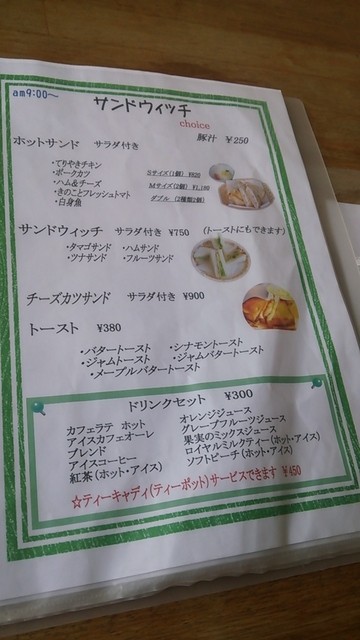 am9:00～
サンドウィッチ
choice
豚汁 ¥250
ホットサンド サラダ付き
・てりやきチキン
・ポークカツ Sサイズ(1個) ¥820
・ハム&チーズ Mサイズ(2個) ¥1,180
・きのこフレッシュトマト ダブル (2種類2個)
・白身魚
サンドウィッチ サラダ付き ¥750 (トーストにもできます)
・タマゴサンド ・ハムサンド
・ツナサンド ・フルーツサンド
チーズカツサンド サラダ付き ¥900
トースト ¥380
・バタートースト ・シナモントースト
・ジャムトースト ・ジャムバタートースト
・メープルバタートースト
ドリンクセット ¥300
カフェラテ ホット オレンジジュース
アイスカフェオーレ グレープフルーツジュース
ブレンド 果実のミックスジュース
アイスコーヒー ロイヤルミルクティー(ホット・アイス)
紅茶(ホット・アイス) ソフトピーチ(ホット・アイス)
☆ティーキャディ(ティーポット)サービスできます ¥450